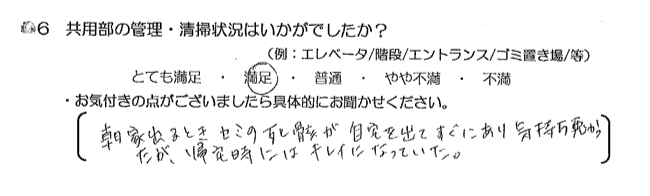 6 共用部の管理・清掃状況はいかがでしたか？
（例：エレベータ/階段/エントランス/ゴミ置き場/等）
とても満足 ・ 満足 ・ 普通 ・ やや不満 ・ 不満
・お気付きの点がございましたら具体的にお聞かせください。
朝家出るときセミの死骸が自宅を出てすぐにあり気持ち悪かっ
たが、帰宅時にはキレイになっていた。